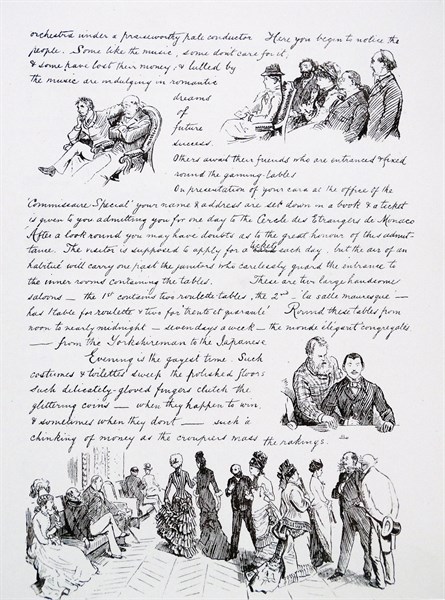 orchestra under a praiseworthy pale conductor Here you begin to notice the
people. Some like the music, some dont care for it,
& some have lost their money, & lulled by
the music are indulging in romantic
dreams
of
future
success.
Others await their friends who are entranced & fixed
round the gaming-tables
On presentation of your card at the office of the
'Commissaire Special' your name & address are set down in a book & a ticket
is given to you admitting you for one day to the Cercle des Etrangers de Monaco
After a look round you may have doubts as to the great honour of this admit-
tance. The visitor is supposed to apply for a ticket each day, but the air of an
habitué will carry one past the janitors who carelessly guard the entrance to
the inner rooms containing the tables. These are two large handsome
saloons — the 1st contains two roulette tables, the 2nd - 'la salle mauresque' —
has 1 table for roulette & two for 'trente et quarante' Round these tables from
noon to nearly midnight — seven days a week — the monde élégant congregates
— from the Yorkshireman to the Japanese
Evening is the gayest time. Such
costumes & toilettes sweep the polished floors
such delicately-gloved fingers clutch the
glittering coins — when they happen to win,
& sometimes when they dont — such a
chinking of money as the croupiers mass the rakings.